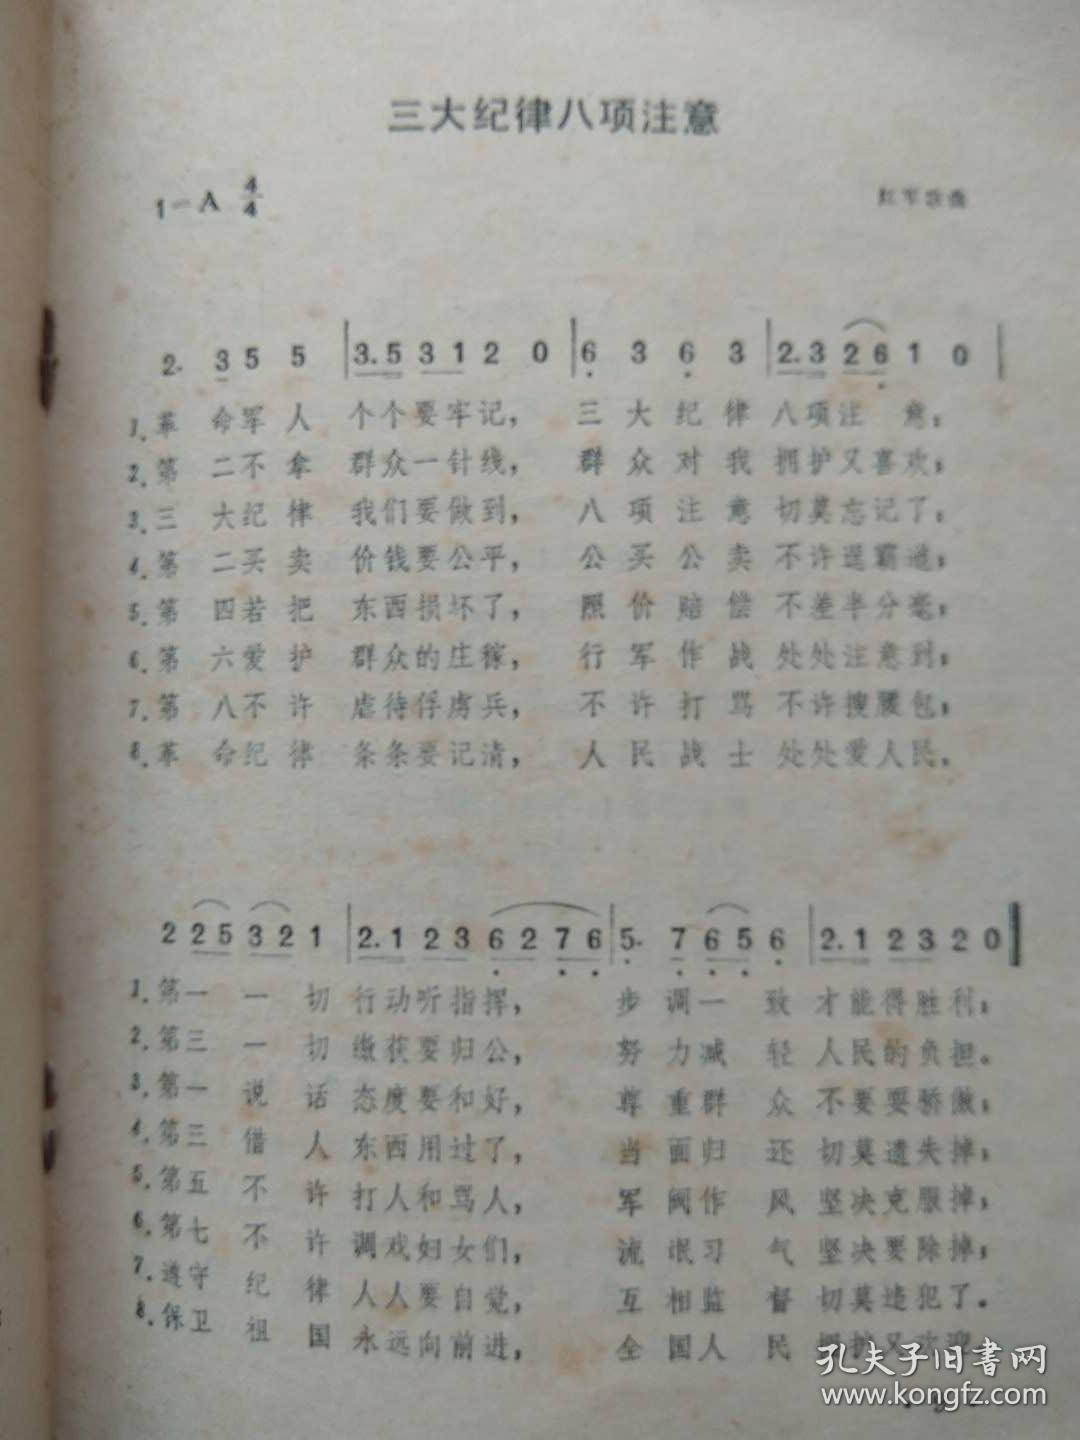 三大纪律八项注意
1=A 4/4
红军歌曲
2. 3 5 5 | 3.5 3 1 2 0 | 6 3 6 3 | 2.3 2 6 1 0 |
1.革命军人个个要牢记，三大纪律八项注意；
2.第二不拿群众一针线，群众对我拥护又喜欢；
3.三大纪律我们要做到，八项注意切莫忘记了；
4.第二买卖价钱要公平，公买公卖不许逞霸道；
5.第四若把东西损坏了，照价赔偿不差半分毫；
6.第六爱护群众的庄稼，行军作战处处注意到；
7.第八不许虐待俘虏兵，不许打骂不许搜腰包；
8.革命纪律条条要记清，人民战士处处爱人民，
2 2 5 3 2 1 | 2.1 2 3 6 2 7 6 | 5. 7 6 5 6 | 2.1 2 3 2 0 ‖
1.第一一切行动听指挥，步调一致才能得胜利；
2.第三一切缴获要归公，努力减轻人民的负担。
3.第一说话态度要和好，尊重群众不要耍骄傲；
4.第三借人东西用过了，当面归还切莫遗失掉；
5.第五不许打人和骂人，军阀作风坚决克服掉；
6.第七不许调戏妇女们，流氓习气坚决要除掉；
7.遵守纪律人人要自觉，互相监督切莫违犯了。
8.保卫祖国永远向前进，全国人民拥护又欢迎
孔夫子旧书网
www.kongfz.com